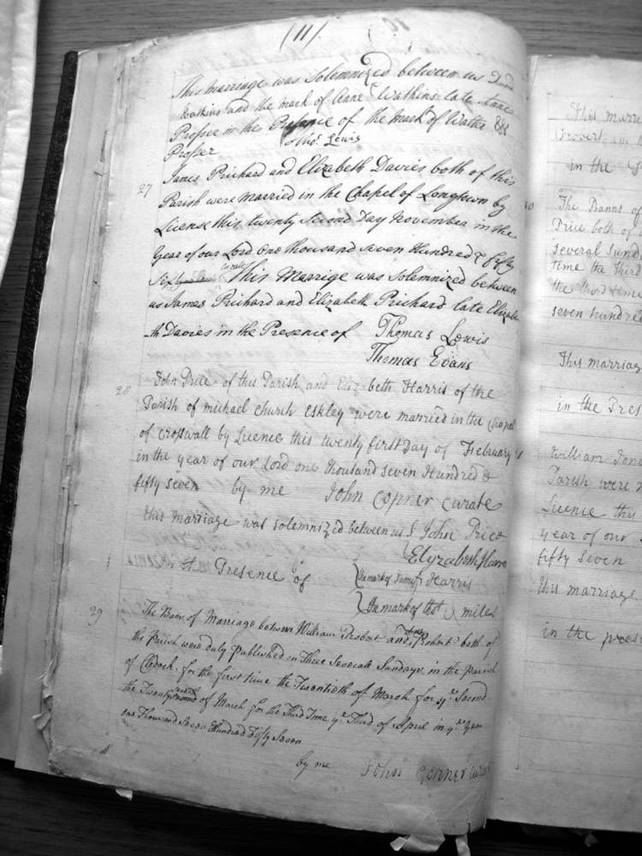 (11)
This marriage was Solemnized between us
Watkins and the mark of Anne Watkins late
Prosser in the Presence of the mark of Walter
Prosser Thos. Lewis
27 James Prichard and Elizabeth Davies both of this
Parish were Married in the Chapel of Longtown by
License this twenty Second Day November in the
Year of our Lord One thousand Seven Hundred & fifty
Six This Marrige was Solemnized between
us James Prichard and Elizabeth Prichard late Elizabe
th Davies in the Presence of Thomas Lewis
Thomas Evans
28 John Price of this Parish and Elizabeth Harris of the
Parish of michael church Eskley were married in the Chapel
of Croswall by Licence this twenty first Day of February
in the year of our Lord one thousand seven Hundred &
fifty seven by me John Copner curate
this marriage was solemnized between us John Price
Elyzabeth Harris
in the Presence of the mark of Harris
the mark of miles
29 The Bans of Marriage between William Probert and Probert both of
the Parish were duly Published on Three Severale Sundays in the Parish
of Clodock for the first time the Twentieth of March for ye Second
the Twenty of March for the Third Time ye Third of April in ye Year
one Thousand Seven Hundred Fifty Seven
by me John Copner Curate
This marri
in the
The Banns of
Price both of
several Sund
time the third
seven hundred
This marriag
in the Pres
William Jon
Parish were
Licence this
year of our
fifty Seven
this marriage
in the prese